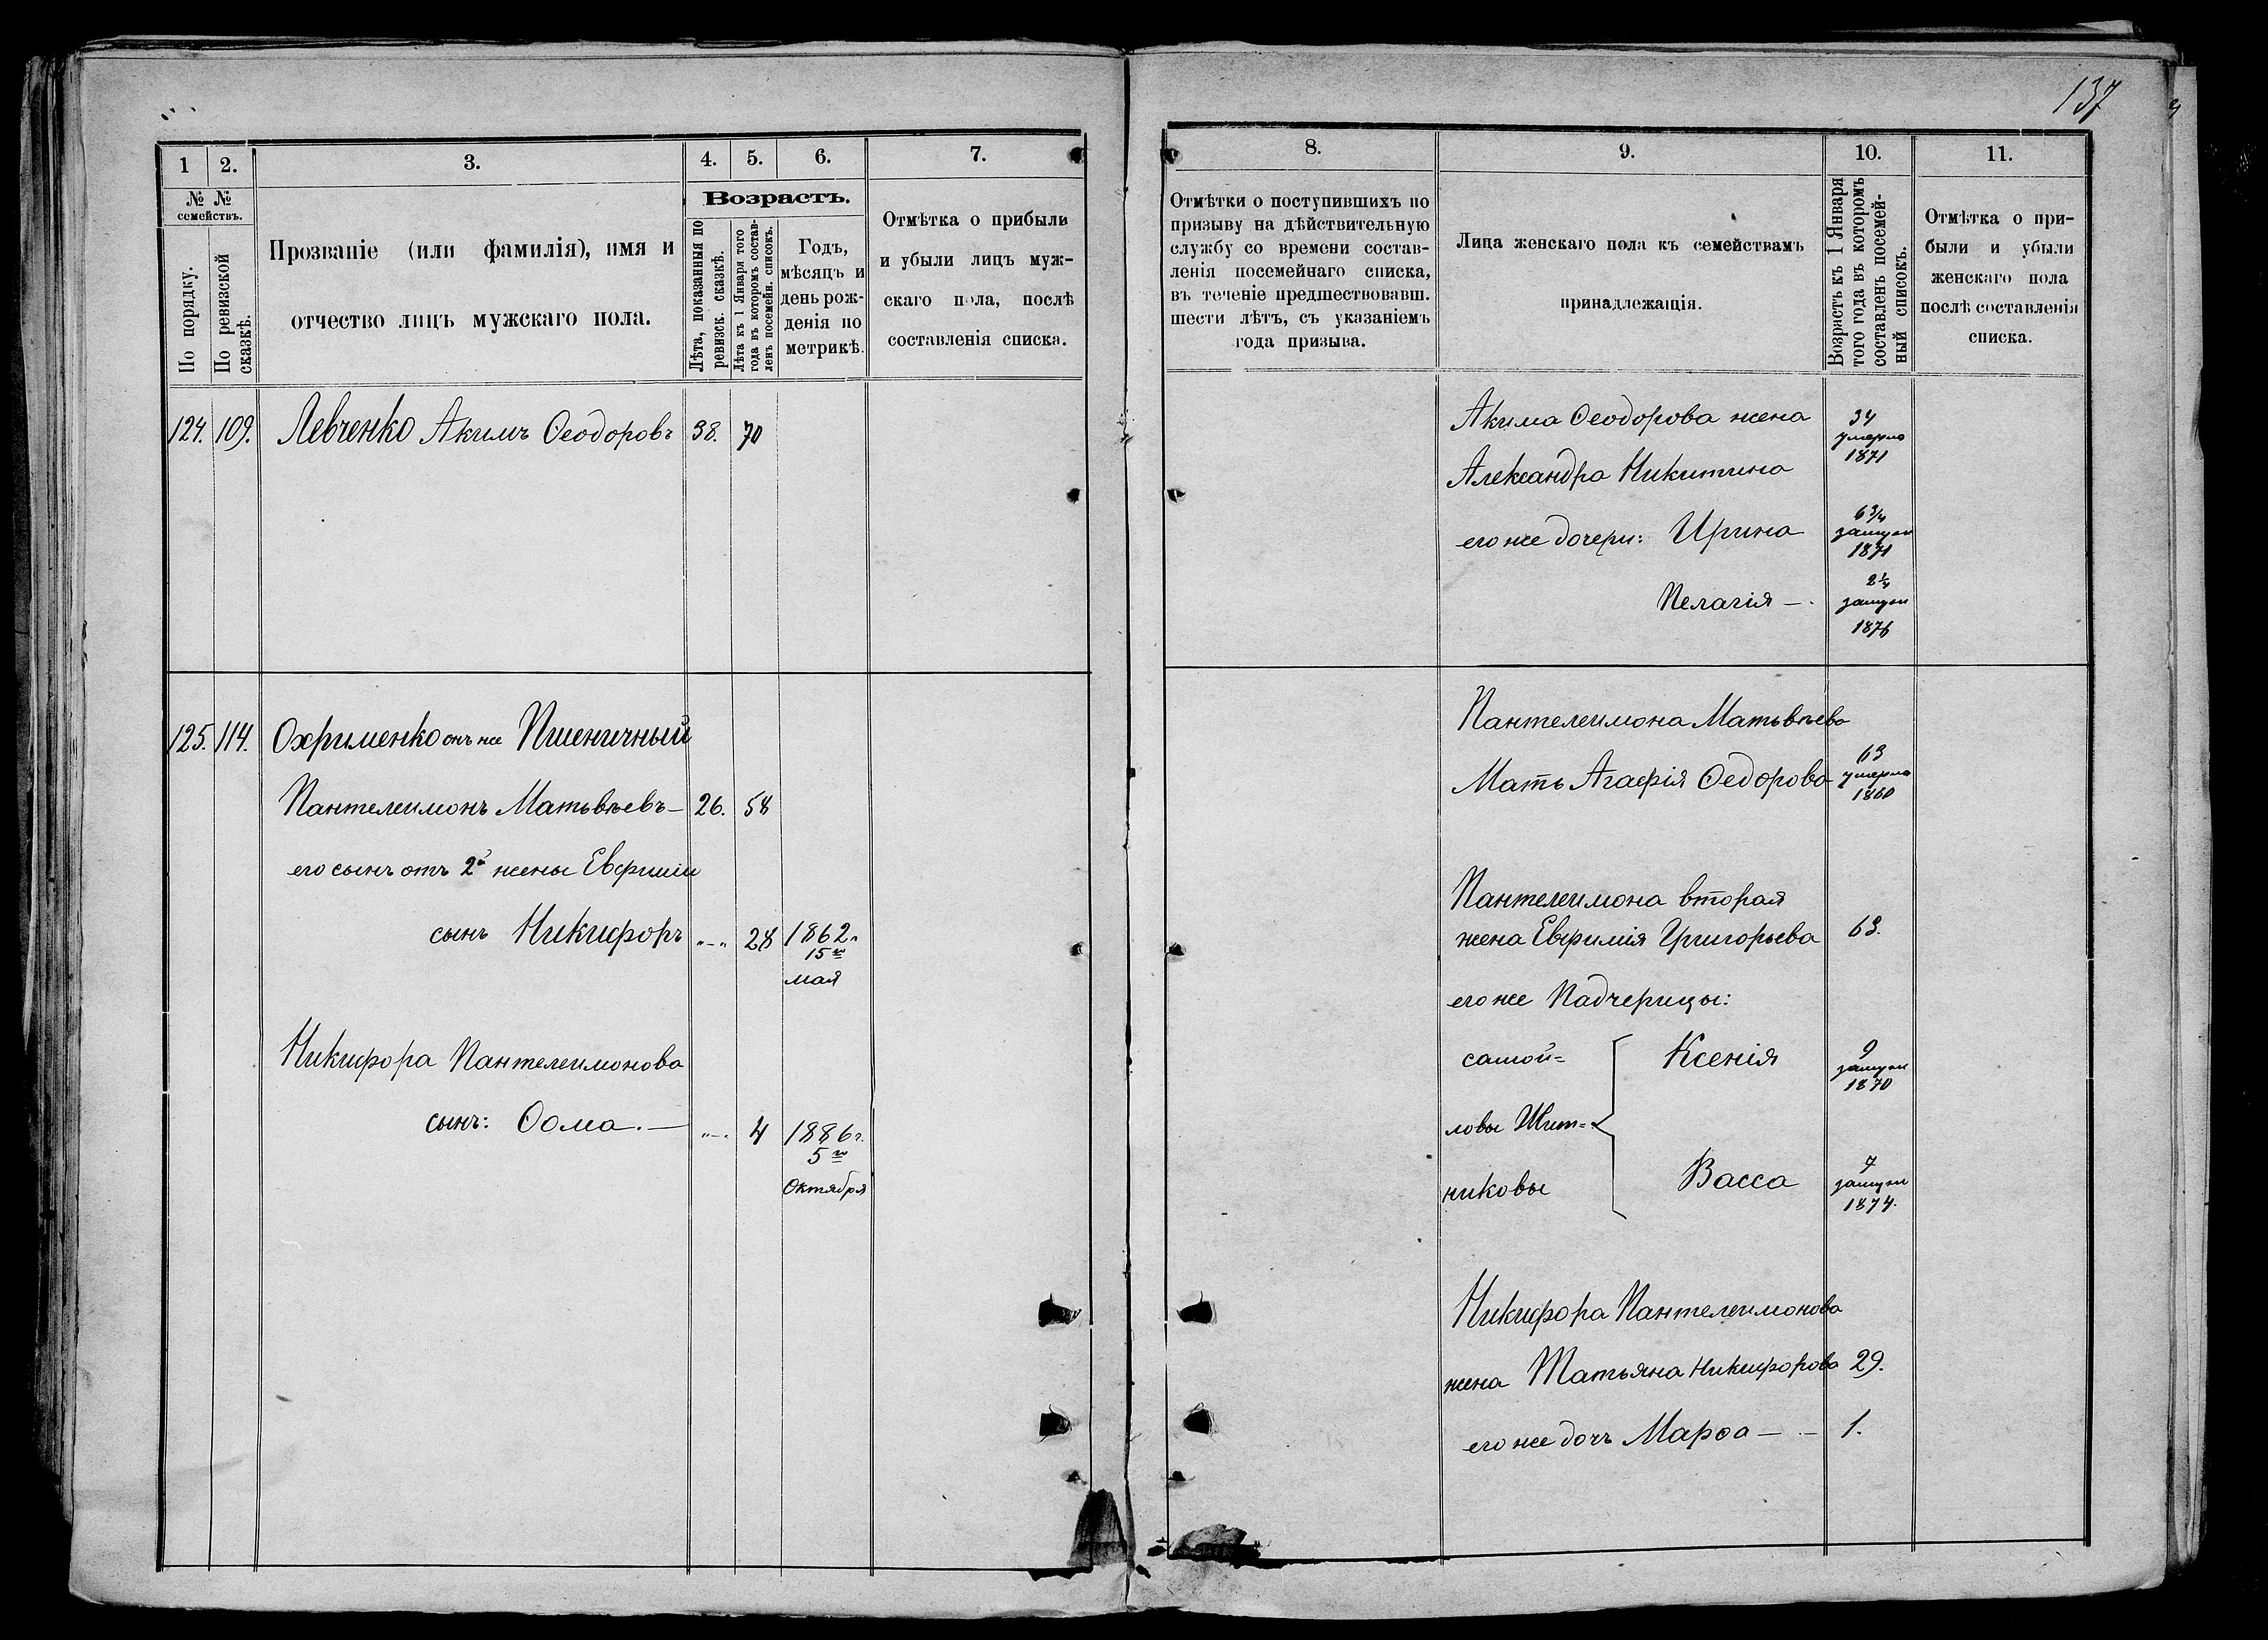 137
1 2. 3. 4. 5. 6. 7.
№ № семействъ.
По порядку.
По ревизской сказкѣ.
Прозваніе (или фамилія), имя и
отчество лицъ мужскаго пола.
Возрастъ.
Лѣта, показанныя по
ревизск. сказкѣ.
Лѣта къ 1 Января того
года въ которомъ состав-
ленъ посемейн. списокъ.
Годъ,
мѣсяцъ и
день рож-
денія по
метрикѣ.
Отмѣтка о прибыли
и убыли лицъ муж-
скаго пола, послѣ
составленія списка.
124. 109. Левченко Акимъ Ѳеодоровъ 38. 70
125. 114. Охрименко онъ же Пшеничный
Пантелеимонъ Матьвѣевъ — 26. 58
его сынъ отъ 2й жены Евфиміи
сынъ Никифоръ „—„ 28 1862г.
15го
мая
Никифора Пантелеимонова
сынъ: Ѳома. — „—„ 4 1886г.
5го
Октября
8. 9. 10. 11.
Отмѣтки о поступившихъ по
призыву на дѣйствительную
службу со времени состав-
ленія посемейнаго списка,
въ теченіе предшествовавш.
шести лѣтъ, съ указаніемъ
года призыва.
Лица женскаго пола къ семействамъ
принадлежащія.
Возрастъ къ 1 Января
того года въ которомъ
составленъ посемей-
ный списокъ.
Отмѣтка о при-
были и убыли
женскаго пола
послѣ составленія
списка.
Акима Ѳеодорова жена 34
умерла
1871
Александра Никитина
его же дочери: Ирина 6 3/4
замуж
1871
Пелагія — 2 1/4
замуж
1876
Пантелеимона Матьвѣева
Мать Агафія Ѳедорова 63
умерла
1860
Пантелеимона вторая
жена Евфимія Григорьева 63.
его же Падчерицы:
самой=
ловы Жит=
никовы
Ксенія 9
замуж
1870
Васса 7
замуж
1874.
Никифора Пантелеимонова
жена Татьяна Никифорова 29.
его же дочь Марѳа — — 1.